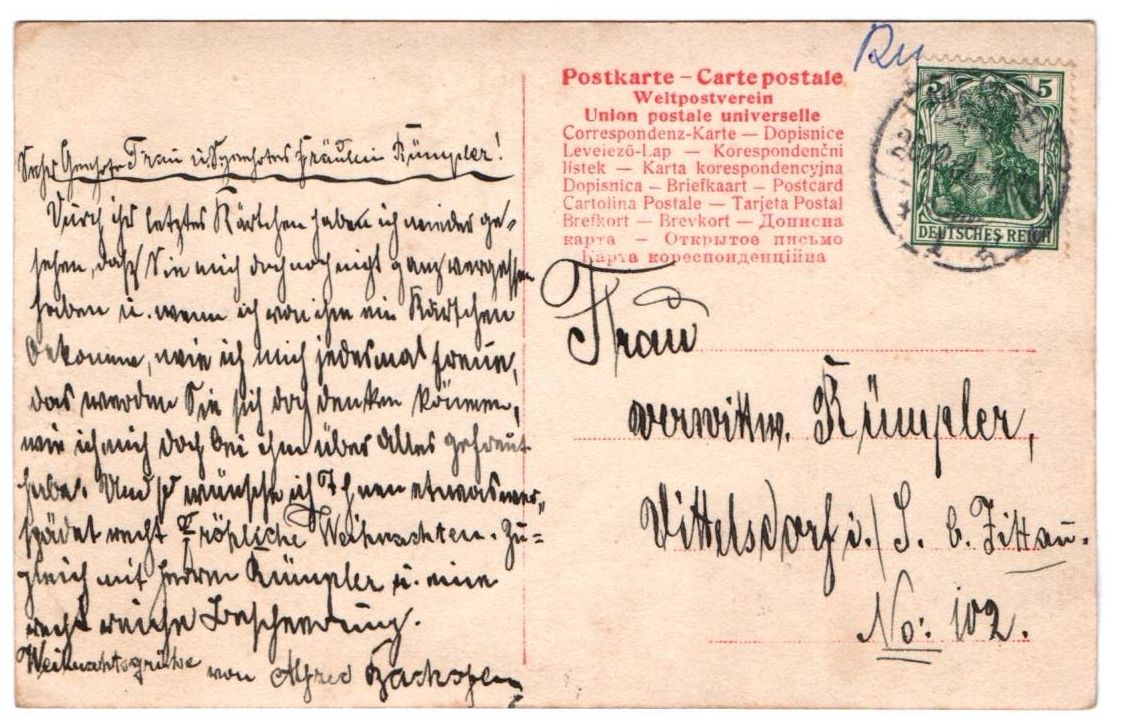 Sehr Geehrte Frau u. Geehrtes Fräulein Rümpler!
Durch ihr letztes Kärtchen haben ich wieder ge-
sehen, daß Sie mich doch noch nicht ganz vergessen
haben u. wenn ich von ihn ein Kärtchen
bekomme, wie ich mich jedesmal freue,
das werden Sie sich doch denken können,
wie ich mich doch bei ihn über Alles gefreut
habe. Und so wünsche ich Ihnen etwas ver-
spädet recht Fröhliche Weihnachten. Zu=
gleich mit Herrn Rümpler u. eine
recht reiche Bescherung.
Weihnachtsgrüße von Alfred
Postkarte – Carte postale
Weltpostverein
Union postale universelle
Correspondenz-Karte — Dopisnice
Levelező-Lap — Korespondenční
lístek — Karta korespondencyjna
Dopisnica — Briefkaart — Postcard
Cartolina Postale — Tarjeta Postal
Brefkort — Brevkort — Дописна
карта — Открытое письмо
Карта кореспонденційна
5 5
DEUTSCHES REICH
Frau
verwittw. Rümpler,
Dittelsdorf i./S. b. Zittau.
No: 102.